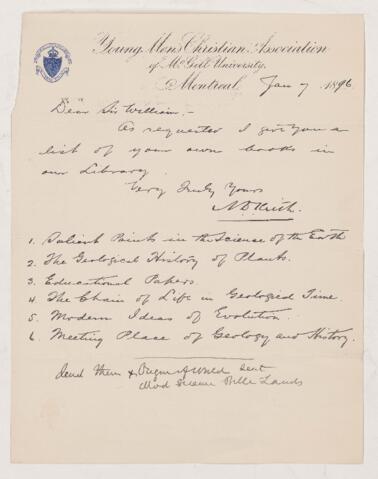 Young Men's Christian Association
of McGill University.
Montreal, Jan 7 1896
Dear Sir William,-
As requested I give you a
list of your own books in
our Library.
Very Truly Yours
1. Salient Points in the Science of the Earth
2. The Geological History of Plants.
3. Educational Papers.
4 The Chain of Life in Geological Time.
5 Modern Ideas of Evolution.
6. Meeting Place of Geology and History.
Send them & World sent
Mod Science Bible Lands